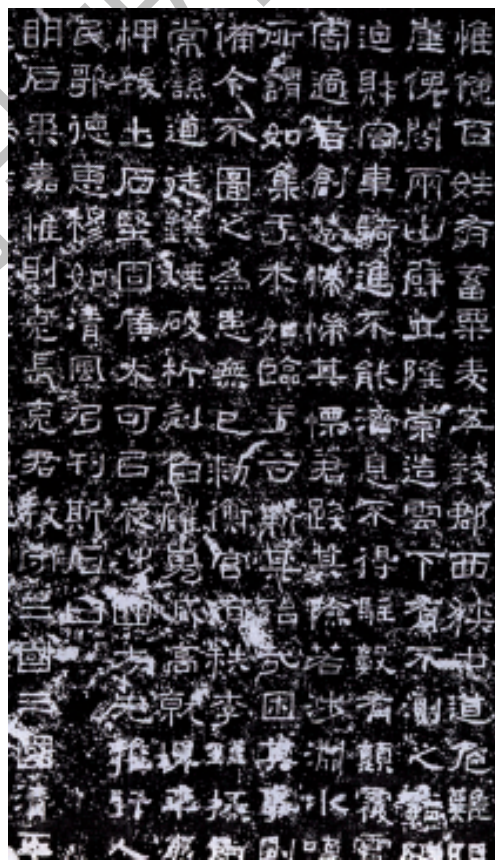 惟億百姓有蓄粟麦五錢郡西狹中道危難阻
崖俾閣兩山壁立隆崇造雲下有不測之谿
迫財容車騎進不能濟息不得駐數有顛覆霣
害過者創楚惴惴其慄君踐其險若涉淵冰嘆
所謂如集于木如臨于谷斯其殆哉困其事則
備今不圖之為患無已敕衡官有秩李瑾掾仇
常繇道徒鐉燒破析刻臽磪嵬減高就埤平夷
柙致土石堅固廣大可以夜涉四方无雍行人
民歌德惠穆如清風乃刊斯石曰
明后柔嘉惟則克長克君牧守三國三國清平